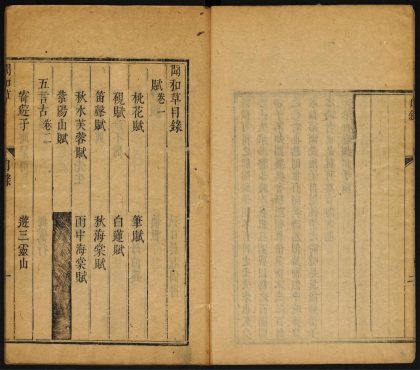 錄
一
和草目錄
賦卷一
桃花賦 筆賦
硯賦 白蓮賦
笛聲賦 秋海棠賦
秋水芙蓉賦 雨中海棠賦
紫陽山賦
五言古卷二
子 遊三靈山
目錄
一